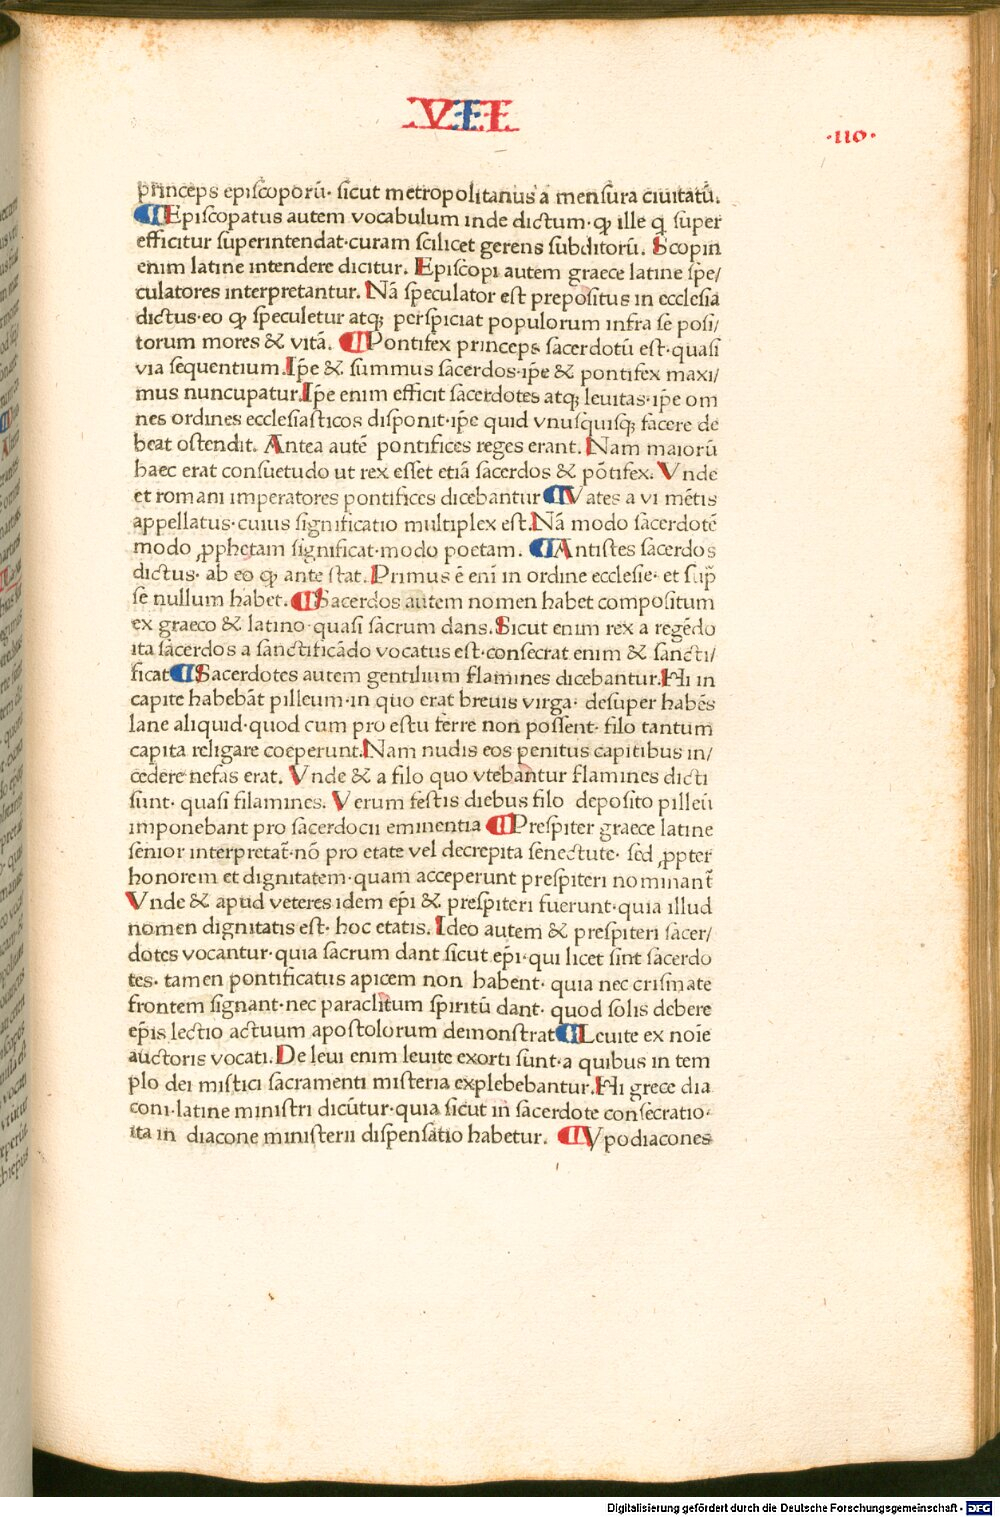 VII
·110·
princeps episcoporū· sicut metropolitanus a mensura ciuitatū.
¶Episcopatus autem vocabulum inde dictum·ꝙ ille q̄ super
efficitur superintendat·curam scilicet gerens subditorū. Scopin
enim latine intendere dicitur. Episcopi autem graece latine spe/
culatores interpretantur. Nā speculator est prepositus in ecclesia
dictus·eo ꝙ speculetur atqꝫ perspiciat populorum infra se posi/
torum mores & vitā. ¶Pontifex princeps sacerdotū est·quasi
via sequentium.Ip̄e & summus sacerdos·ip̄e & pontifex maxi/
mus nuncupatur.Ip̄e enim efficit sacerdotes atqꝫ leuitas·ip̄e om
nes ordines ecclesiasticos disponit·ip̄e quid vnusquisqꝫ facere de
beat ostendit. Antea autē pontifices reges erant. Nam maiorū
haec erat consuetudo ut rex esset etiā sacerdos & pōtifex. Vnde
et romani imperatores pontifices dicebantur ¶Vates a vi mētis
appellatus·cuius significatio multiplex est.Nā modo sacerdotē
modo ꝓphetam significat·modo poetam. ¶Antistes sacerdos
dictus· ab eo ꝙ ante stat. Primus ē eni̅ in ordine ecclesie· et sup̄
se nullum habet. ¶Sacerdos autem nomen habet compositum
ex graeco & latino·quasi sacrum dans.Sicut enim rex a regēdo
ita sacerdos a sanctificādo vocatus est·consecrat enim & sancti/
ficat ¶Sacerdotes autem gentilium flamines dicebantur.Hi in
capite habebāt pilleum·in quo erat breuis virga· desuper habēs
lane aliquid·quod cum pro estu ferre non possent· filo tantum
capita religare coeperunt.Nam nudis eos penitus capitibus in/
cedere nefas erat. Vnde & a filo quo vtebantur flamines dicti
sunt· quasi filamines. Verum festis diebus filo deposito pilleū
imponebant pro sacerdocii eminentia ¶Prespiter graece latine
senior interpretat̄·nō pro etate vel decrepita senectute· sed ꝓpter
honorem et dignitatem·quam acceperunt prespiteri nominant̄
Vnde & apud veteres idem ep̄i & prespiteri fuerunt·quia illud
nomen dignitatis est· hoc etatis. Ideo autem & prespiteri sacer/
dotes vocantur·quia sacrum dant sicut ep̄i·qui licet sint sacerdo
tes· tamen pontificatus apicem non habent· quia nec crismate
frontem signant·nec paraclitum spiritū dant· quod solis debere
ep̄is lectio actuum apostolorum demonstrat ¶Leuite ex noīe
auctoris vocati. De leui enim leuite exorti sunt·a quibus in tem
plo dei mistici sacramenti misteria explebebantur.Hi grece dia
coni·latine ministri dicūtur·quia sicut in sacerdote consecratio·
ita in diacone ministerii dispensatio habetur. ¶Ypodiacones
Digitalisierung gefördert durch die Deutsche Forschungsgemeinschaft - DFG